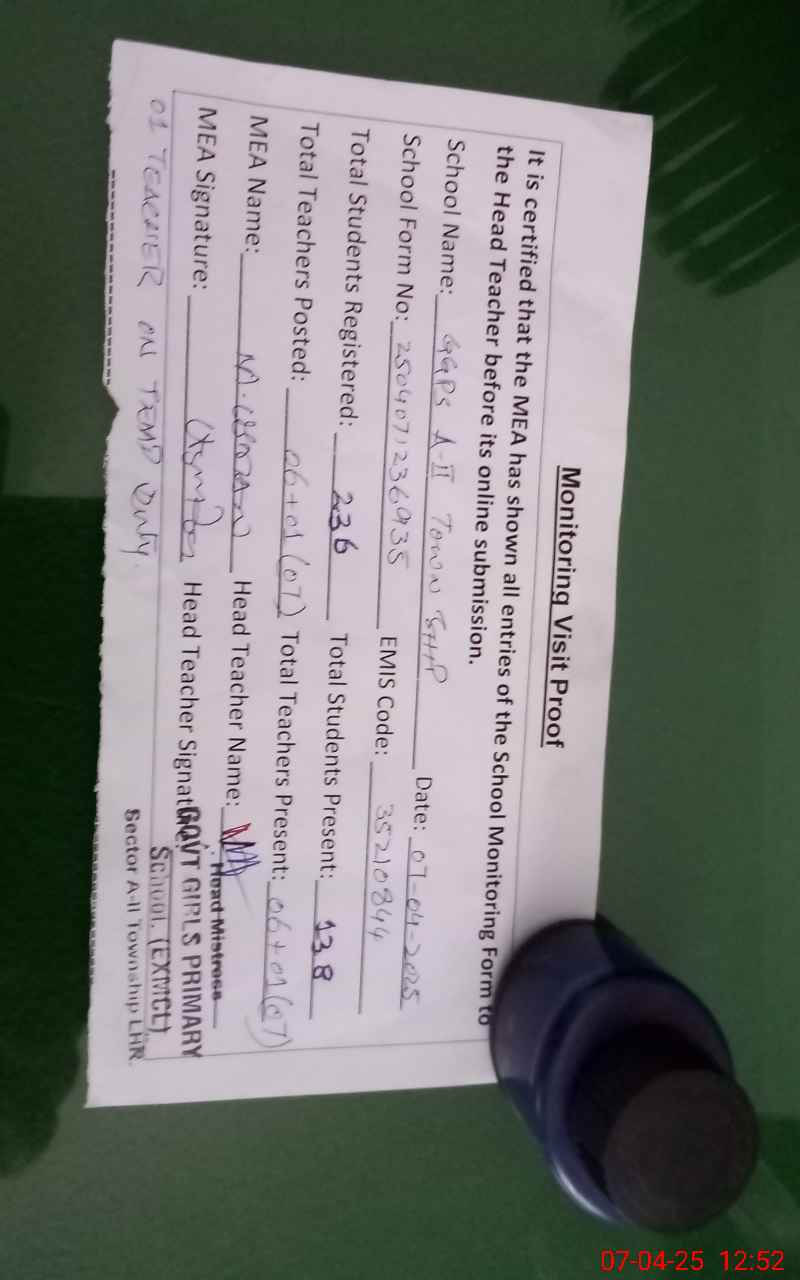 Monitoring Visit Proof
It is certified that the MEA has shown all entries of the School Monitoring Form to
the Head Teacher before its online submission.
School Name: GGPS A-II TOWN SHIP Date: 07-04-2025
School Form No: 2504071236935 EMIS Code: 35210844
Total Students Registered: 236 Total Students Present: 138
Total Teachers Posted: 06+01(07) Total Teachers Present: 06+01(07)
MEA Name: Head Teacher Name:
Head Mistress
MEA Signature: Head Teacher Signature:
GOVT GIRLS PRIMARY
SCHOOL (EXMCL)
Sector A-II Township LHR.
01 TEACHER ON Duty.
07-04-25 12:52